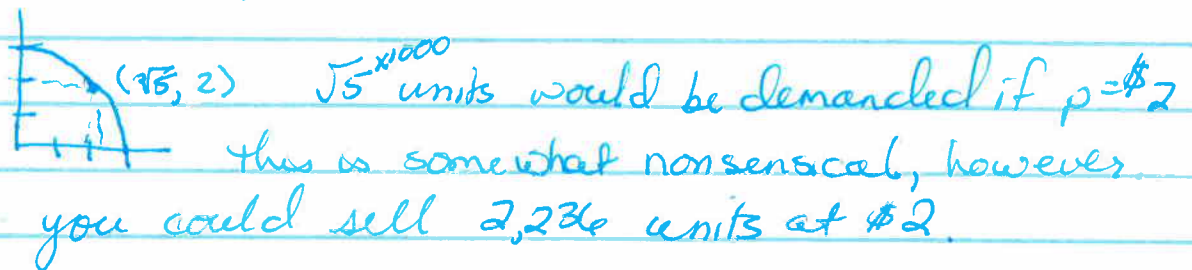 (√5, 2) √5 ×1000 units would be demanded if p = $2
this is somewhat nonsensical, however
you could sell 2,236 units at $2.